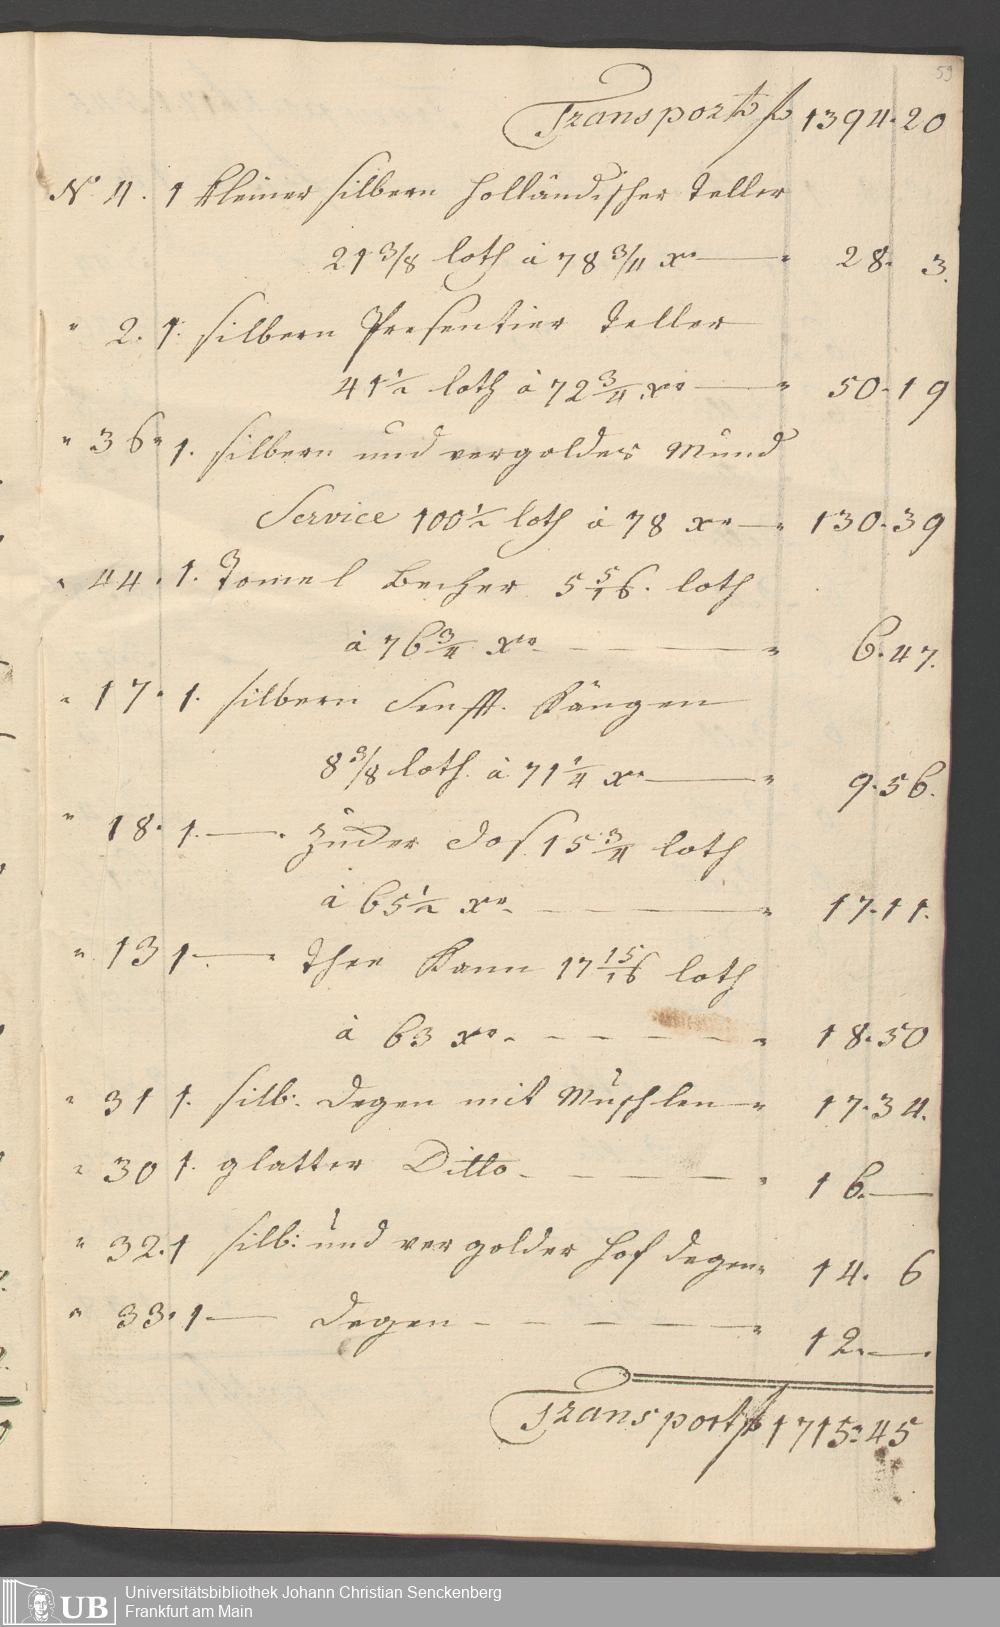 59
Transport f 1394.20
No 4. 1 kleiner silbern holländischer Teller
21 3/8 loth à 78 3/4 xr — " 28. 3.
" 2. 1. silbern Presentier Teller
41 1/2 loth à 72 3/4 xr — " 50.19
" 36 " 1. silbern und vergoldes Mund
Service 100 1/2 loth à 78 xr — " 130.39
" 44. 1. Tomel Becher 5 5/16. loth
à 76 3/4 xr — " 6.47.
" 17. 1. silbern Senfft. Kängen
8 3/8 loth à 71 1/4 xr — " 9.56.
" 18. 1. — Zucker Dos 15 3/4 loth
à 65 1/2 xr — " 17.11.
" 13 1 — Thee Kann 17 15/16 loth
à 63 xr — " 18.50
" 31 1. silb: Degen mit Muschlen — " 17.34.
" 30 1. glatter Ditto — " 16. —
" 32. 1 silb: und vergolder Hof Degen " 14. 6
" 33. 1 — Degen — " 12. —.
Transport f 1715:45
UB Universitätsbibliothek Johann Christian Senckenberg
Frankfurt am Main